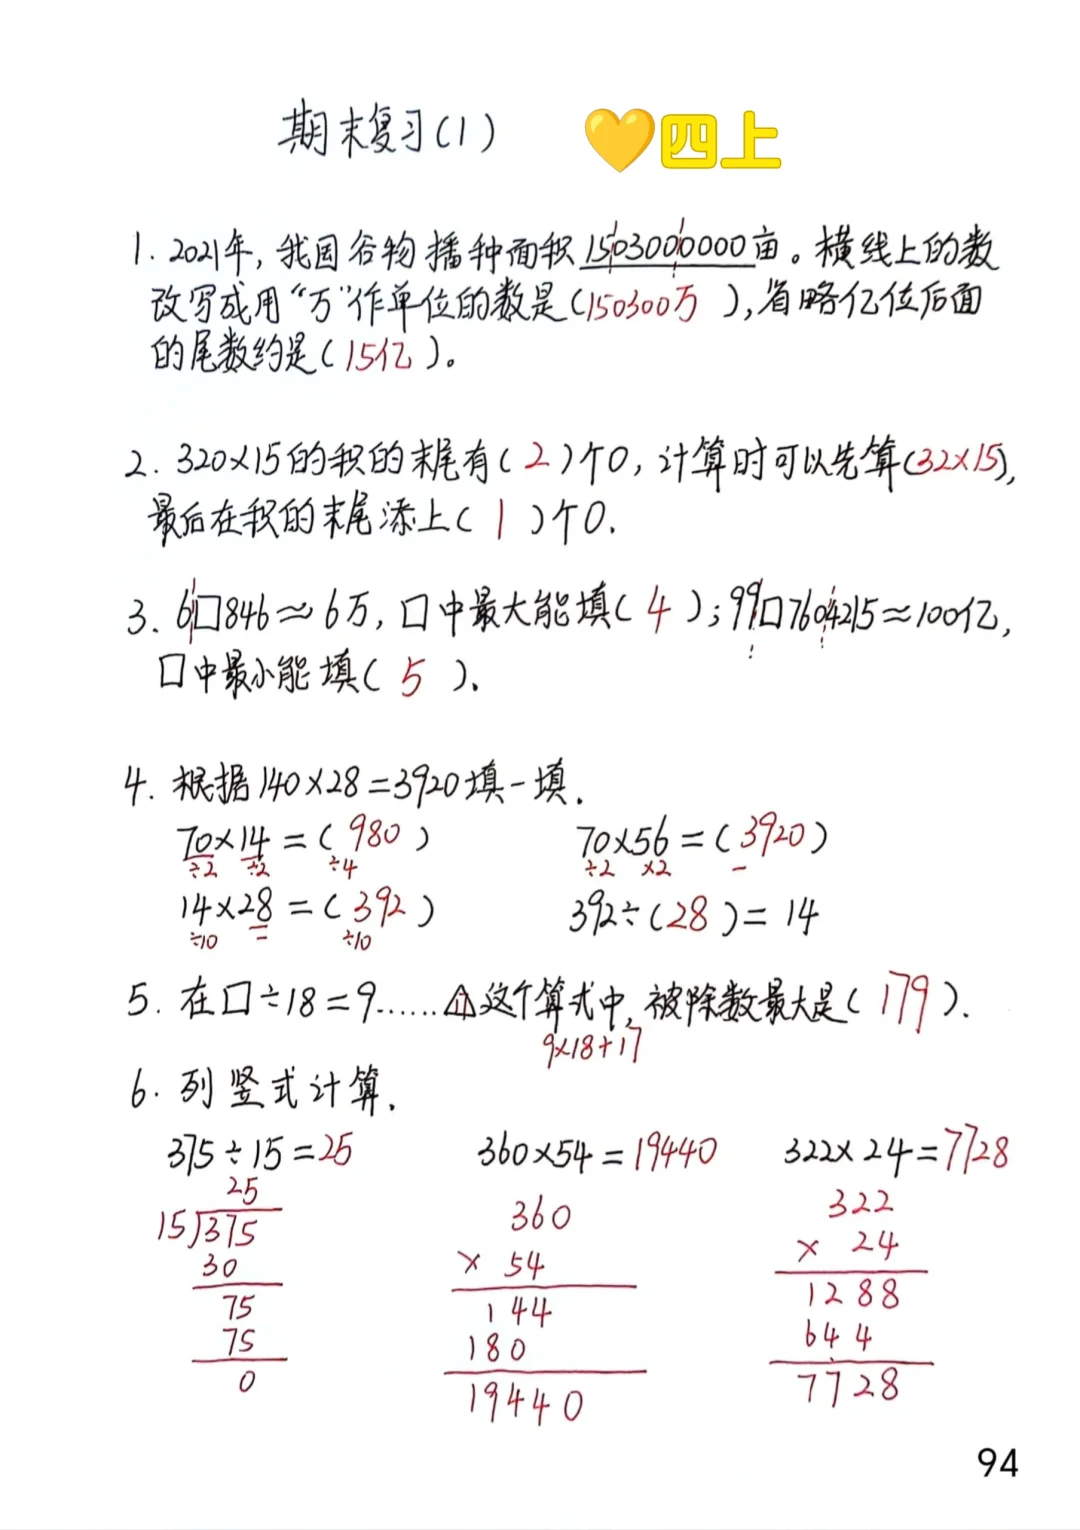 期末复习(1) 💛四上
1. 2021年,我国谷物播种面积1503000000亩。横线上的数
改写成用“万”作单位的数是(150300万),省略亿位后面
的尾数约是(15亿)。
2. 320×15的积的末尾有(2)个0,计算时可以先算(32×15),
最后在积的末尾添上(1)个0.
3. 6□846≈6万,口中最大能填(4);99□7604215≈100亿,
口中最小能填(5).
4. 根据140×28=3920填一填.
70×14=(980) 70×56=(3920)
÷2 ÷2 ÷4 ÷2 ×2 −
14×28=(392) 392÷(28)=14
÷10 = ÷10
5. 在□÷18=9……△17这个算式中,被除数最大是(179).
9×18+17
6. 列竖式计算.
375÷15=25 360×54=19440 322×24=7728
25
15)375 360 322
30 × 54 × 24
75 144 1288
75 180 644
0 19440 7728
94